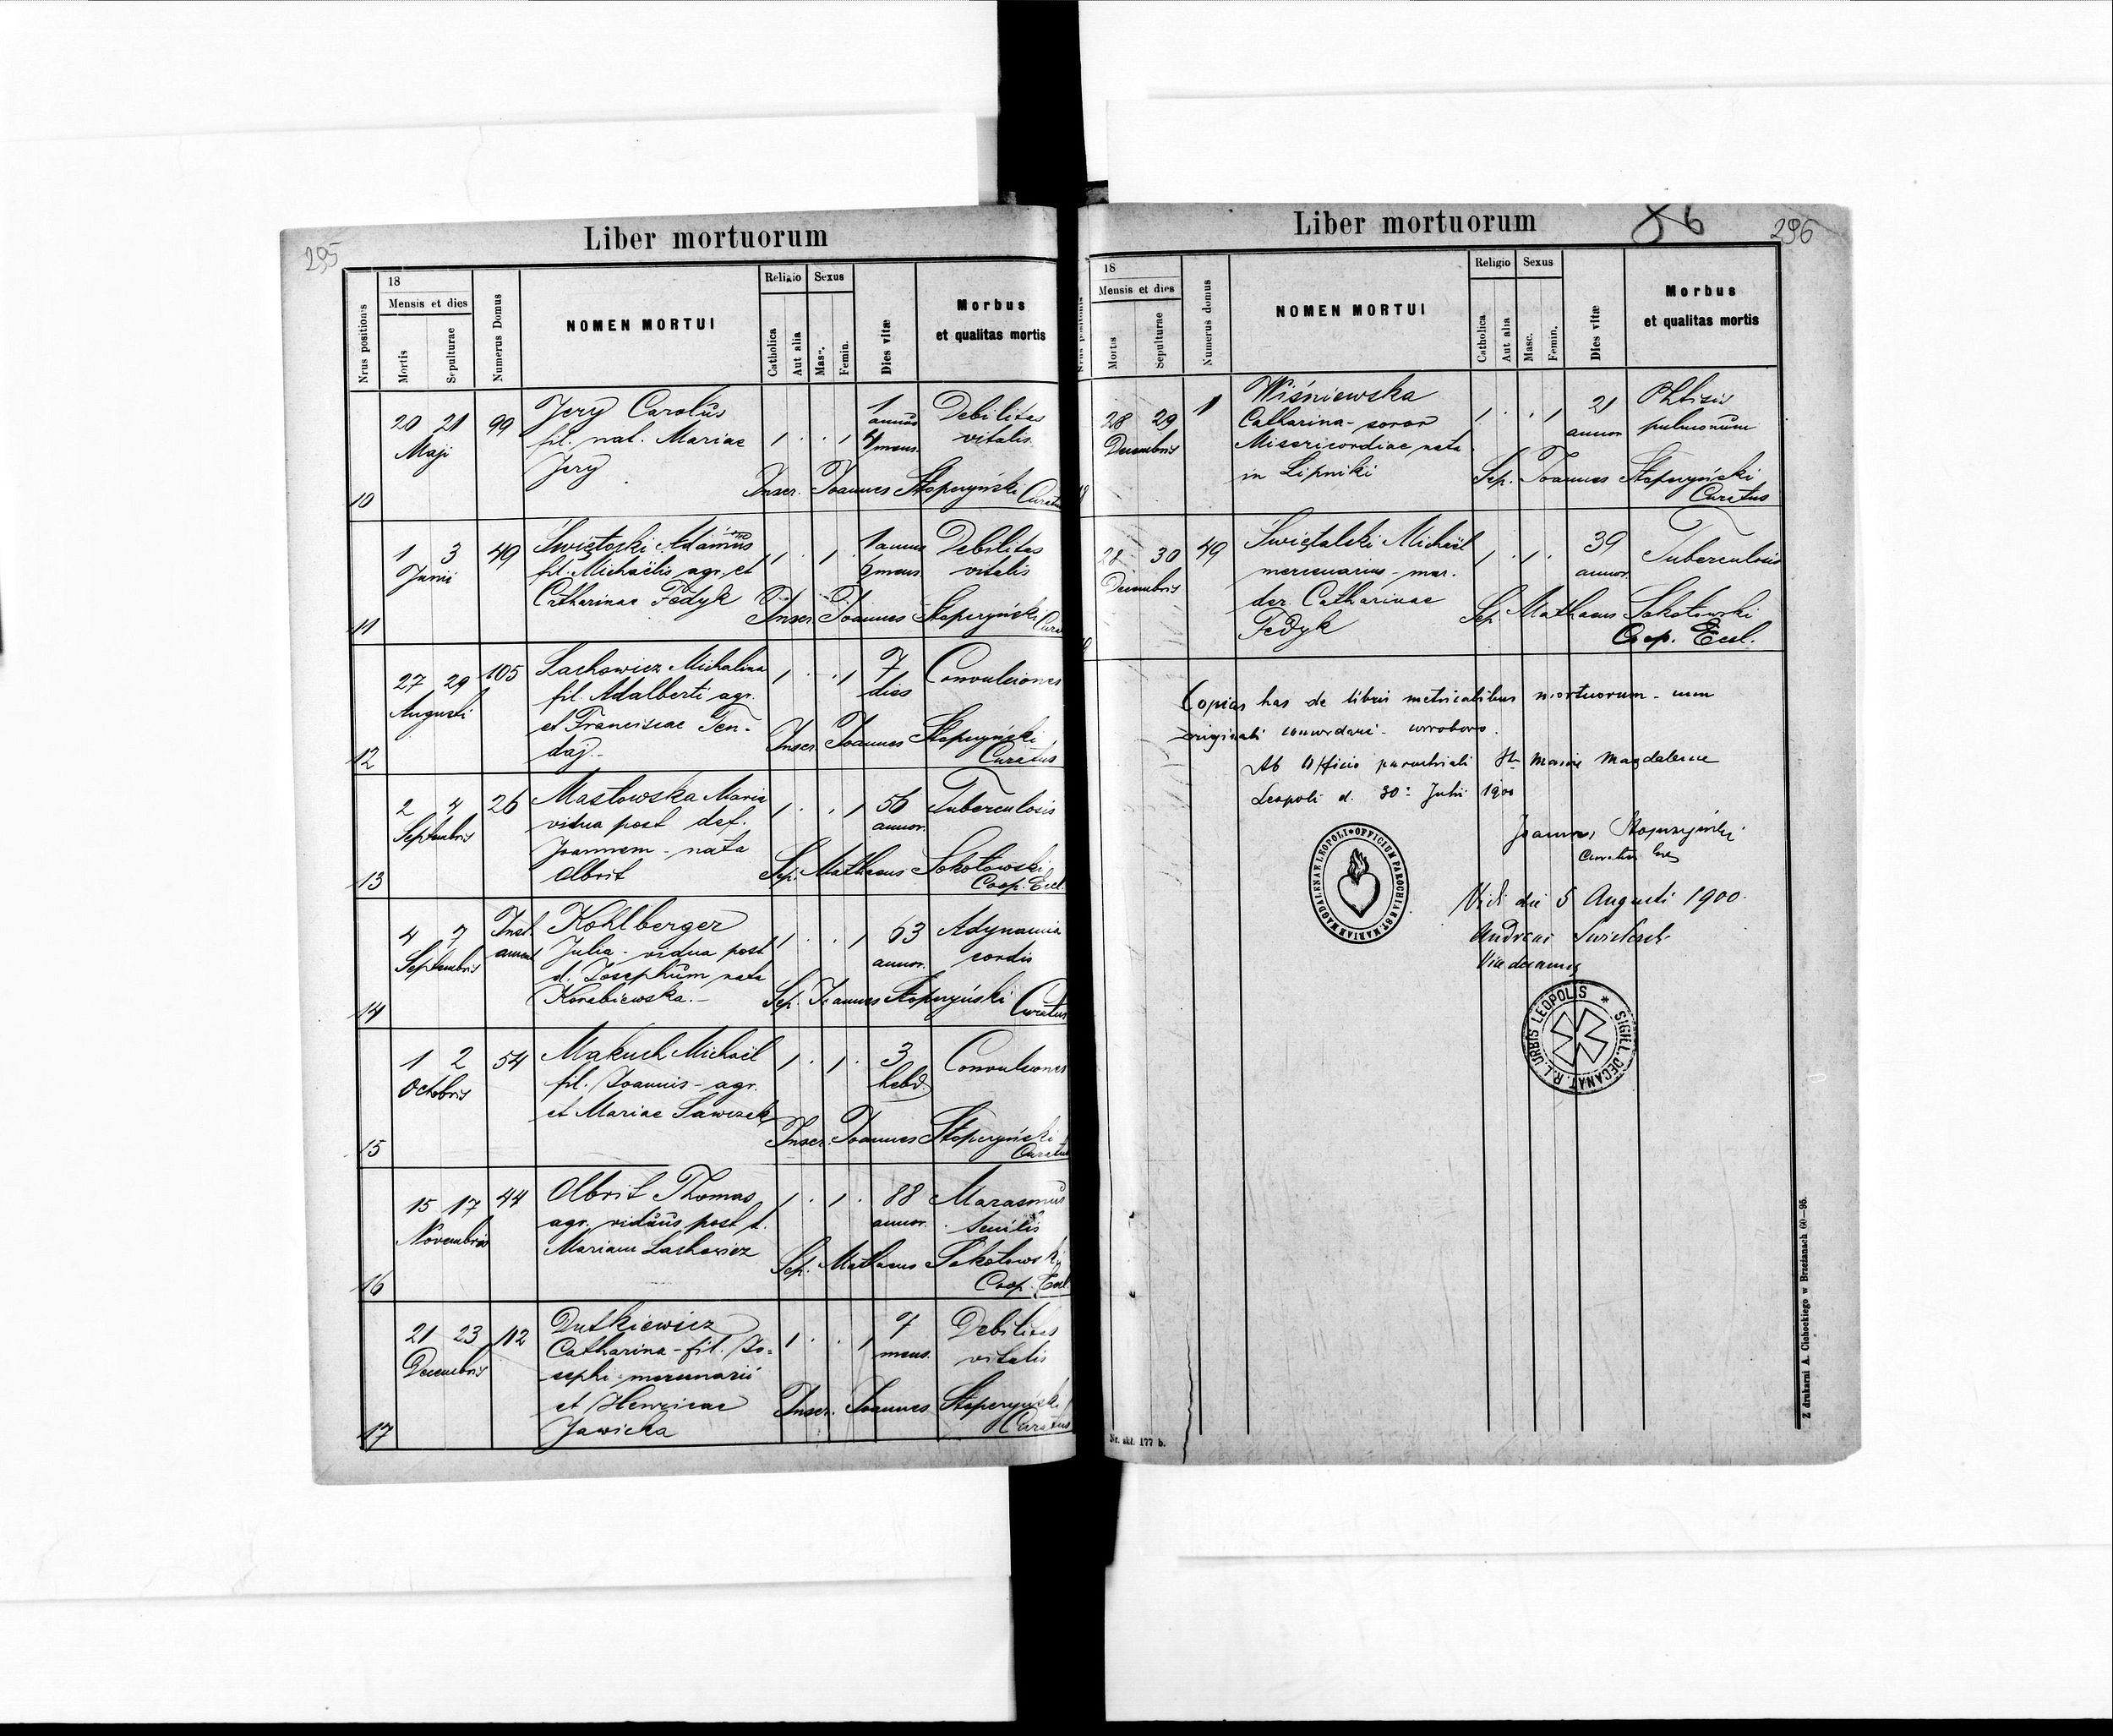 295
Liber mortuorum
Nrus positionis
18
Mensis et dies
Mortis
Sepulturae
Numerus Domus
NOMEN MORTUI
Religio
Catholica
Aut alia
Sexus
Masc.
Femin.
Dies vitæ
Morbus
et qualitas mortis
10
20 21
Maji
99
Jery Carolus
fil. nat. Mariae
Jery
1 annus
4 mens.
Debilitas
vitalis
Inscr. Joannes Stopczyński Curatus
11
1 3
Junii
49
Świętoski Adamus
fil. Michaëlis agr. et
Catharinae Fedyk
1 annus
9 mens.
Debilitas
vitalis
Inscr. Joannes Stopczyński Cura
12
27 29
Augusti
105
Lachowicz Michalina
fil. Adalberti agr.
et Franciscae Ten-
daj -
7
dies
Convulsiones
Inscr. Joannes Stopczyński
Curatus
13
2 4
Septembris
26
Masłowska Maria
vidua post def.
Joannem - nata
Olbrit
56
annor.
Tuberculosis
Sep. Mathaeus Sokołowski
Coop. Eccl.
14
4 7
Septembris
Kohlberger
Julia - vidua post
d. Josephum nata
Korabiewska. -
63
annor.
Adynamia
cordis
Sep. Joannes Stopczyński Curatus
15
1 2
Octobris
54
Makuch Michaël
fil. Joannis - agr.
et Mariae Sawczek
3
hebd.
Convulsiones
Inscr. Joannes Stopczyński
Curatus
16
15 17
Novembris
44
Olbrit Thomas
agr. viduus post d.
Mariam Lachowicz
88
annor.
Marasmus
senilis
Sep. Mathaeus Sokołowski
Coop. Eccl.
17
21 23
Decembris
112
Dutkiewicz
Catharina - fil. Jo=
sephi mercenarii
et Henricae
Jawicka
7
mens.
Debilitas
vitalis
Inscr. Joannes Stopczyński
Curatus
86
296
Liber mortuorum
Nrus positionis
18
Mensis et dies
Mortis
Sepulturae
Numerus domus
NOMEN MORTUI
Religio
Catholica
Aut alia
Sexus
Masc.
Femin.
Dies vitæ
Morbus
et qualitas mortis
28 29
Decembris
1
Wiśniewska
Catharina - soror
Misericordiae, nata
in Lipniki
21
annor.
Phtisis
pulmonum
Sep. Joannes Stopczyński
Curatus
28 30
Decembris
49
Świętalski Michaël
mercenarius - mar.
der. Catharinae
Fedyk
39
annor.
Tuberculosis
Sep. Mathaeus Sokołowski
Coop. Eccl.
Copias has de libris metricalibus mortuorum - cum
originali concordari - corroboro.
Ab Officio parochiali St. Mariae Magdalenae
Leopoli d. 30: Julii 1900
Joannes Stopczyński
OFFICIUM PAROCHIAE ST. MARIAE MAGDALENAE LEOPOLI
Vidi die 5 Augusti 1900.
Andreas
Vicedecanus
SIGILL. DECANAT. R. L. URBIS LEOPOLIS
Nr. skł. 177 b.
Z drukarni A. Cichockiego w Brzeżanach 60—95.